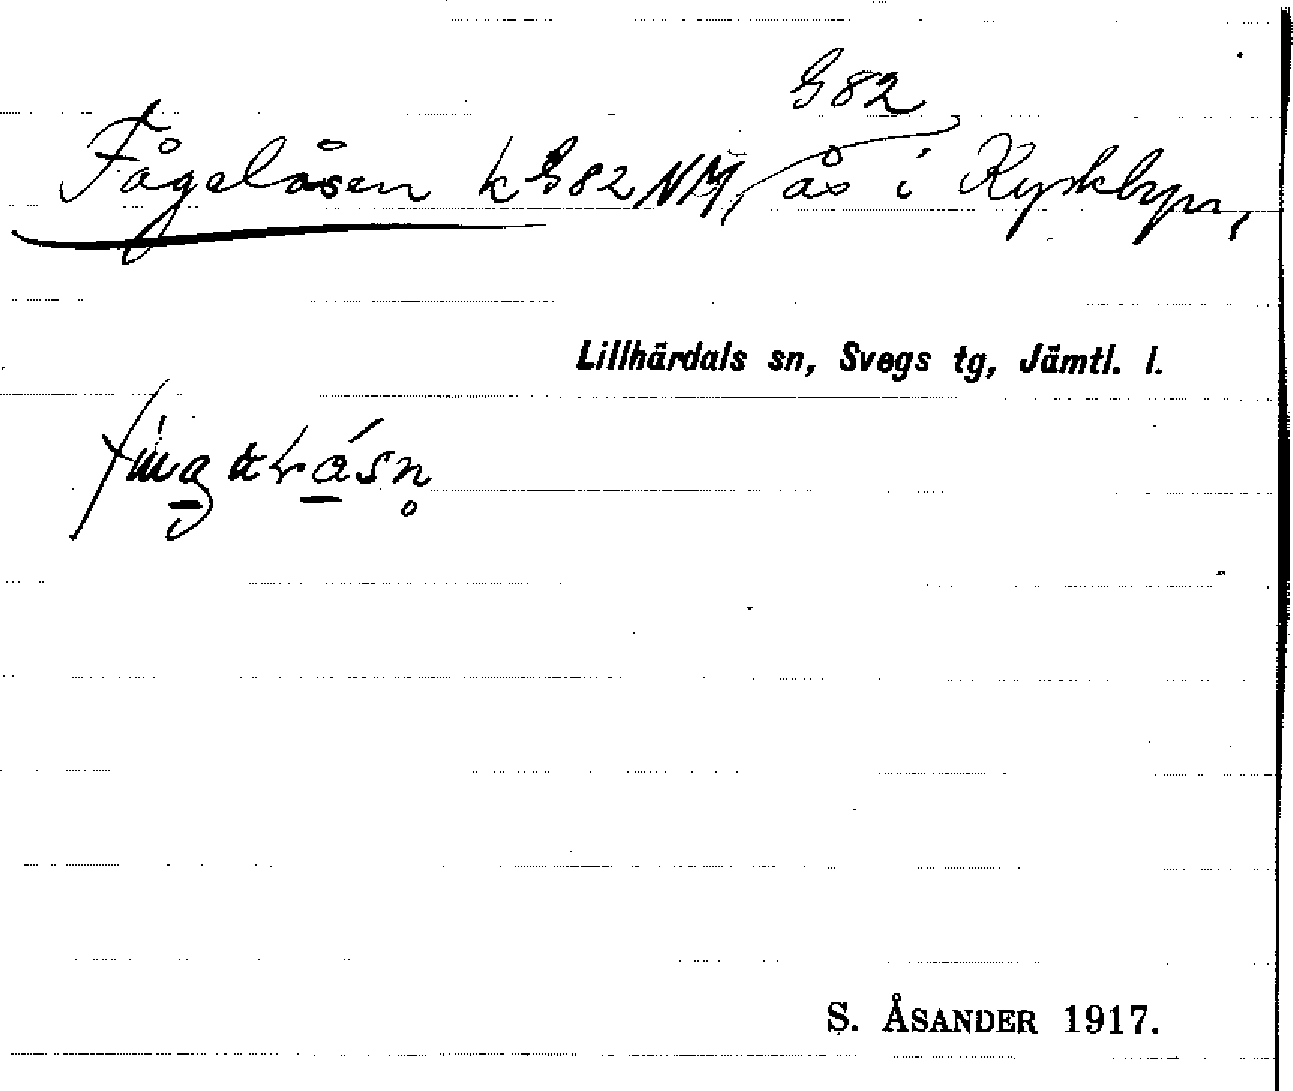 G82
Fågelåsen k G82 NM, ås i Kyrkbyn,
Lillhärdals sn, Svegs tg, Jämtl. l.
S. ÅSANDER 1917.